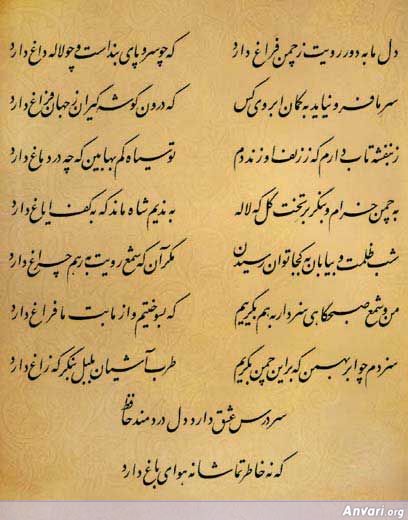 دل ما به دور رویت ز چمن فراغ دارد که چو سرو پای بند است و چو لاله داغ دارد
سر ما فرو نیاید به کمان ابروی کس که درون گوشه گیران ز جهان فراغ دارد
ز بنفشه تاب دارم که ز زلف او زند دم تو سیاه کم بها بین که چه در دماغ دارد
به چمن خرام و بنگر بر تخت گل که لاله به ندیم شاه ماند که به کف ایاغ دارد
شب ظلمت و بیابان به کجا توان رسیدن مگر آن که شمع رویت به رهم چراغ دارد
من و شمع صبحگاهی سزد ار به هم بگرییم که بسوختیم و از ما بت ما فراغ دارد
سزدم چو ابر بهمن که بر این چمن بگریم طرب آشیان بلبل بنگر که زاغ دارد
سر درس عشق دارد دل دردمند حافظ
که نه خاطر تماشا نه هوای باغ دارد
Anvari.org